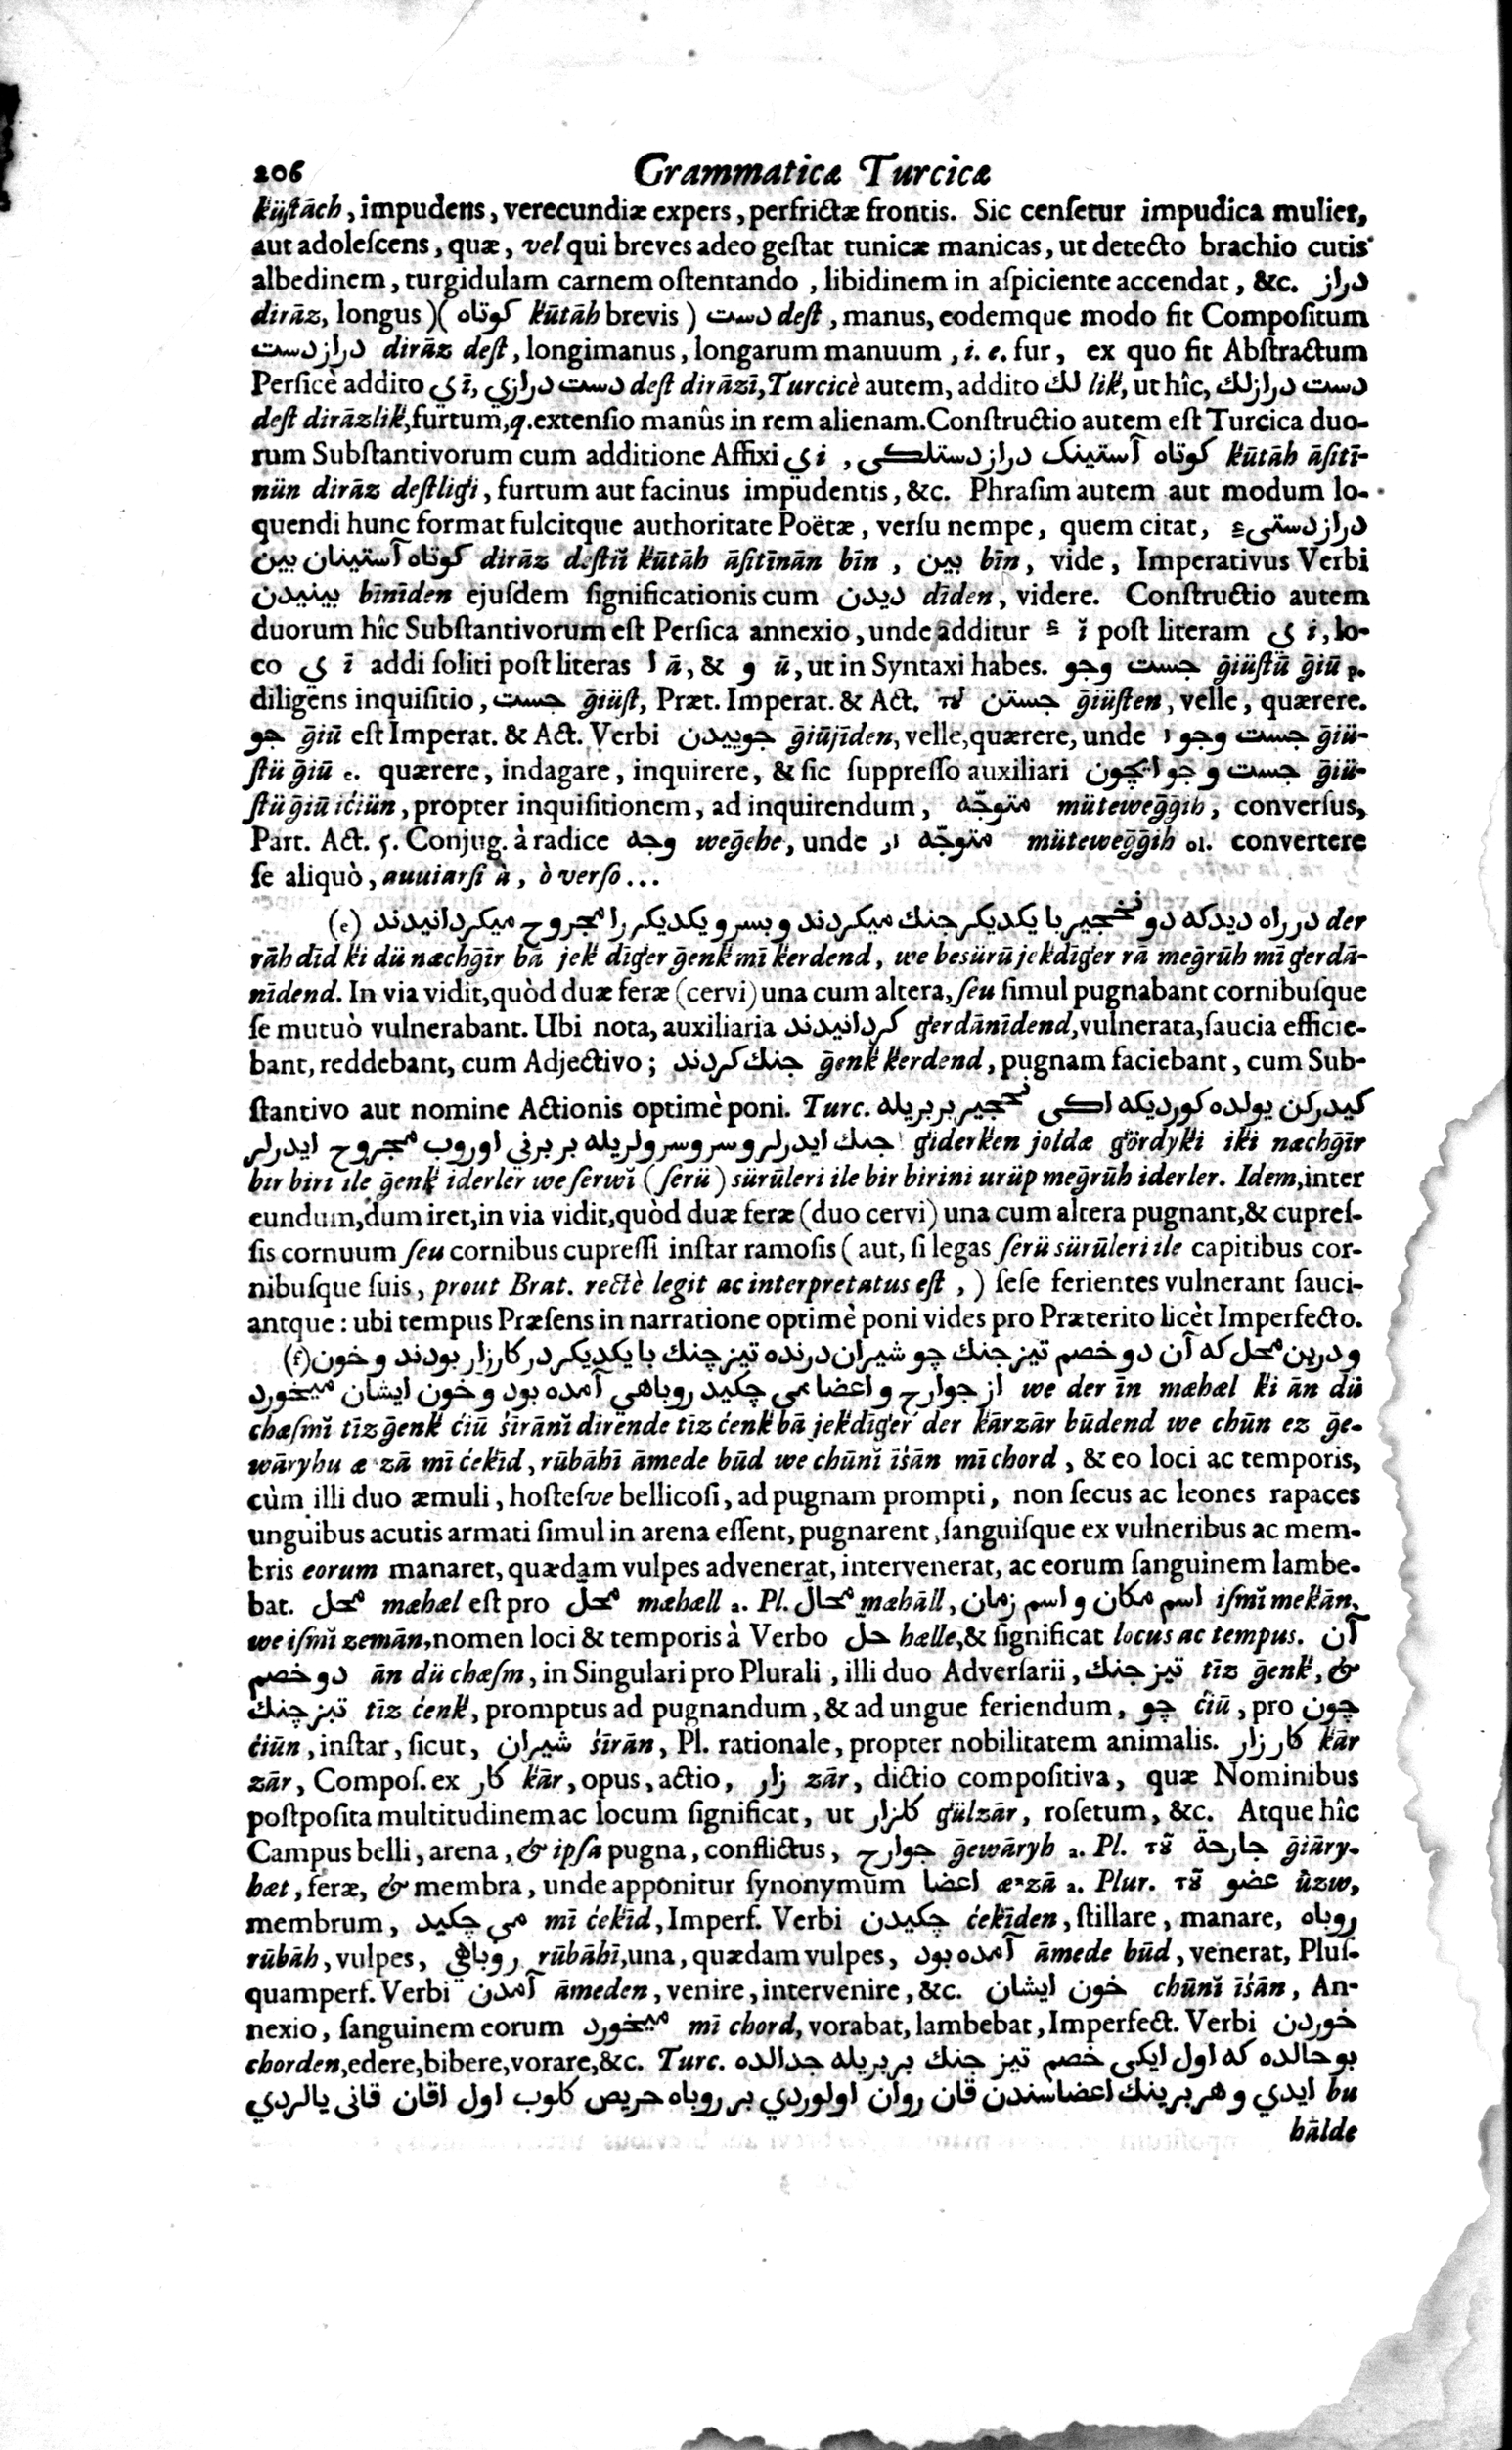 206 Grammaticæ Turcicæ
k̈üſtāch, impudens, verecundiæ expers, perfrictæ frontis. Sic cenſetur impudica mulier,
aut adoleſcens, quæ, vel qui breves adeo geſtat tunicæ manicas, ut detecto brachio cutis
albedinem, turgidulam carnem oſtentando, libidinem in aſpiciente accendat, &c. دراز
dirāz, longus )( كوتاه k̈ūtāh brevis ) دست deſt, manus, eodemque modo fit Compoſitum
درازدست dirāz deſt, longimanus, longarum manuum, i. e. fur, ex quo fit Abſtractum
Perſicè addito ى ī, دست درازي deſt dirāzī, Turcicè autem, addito لك lik̈, ut hîc, دست درازلك
deſt dirāzlik̈, furtum, q. extenſio manûs in rem alienam. Conſtructio autem eſt Turcica duo-
rum Subſtantivorum cum additione Affixi ى i, كوتاه آستينك درازدستلكى k̈ūtāh āſitī-
nün dirāz deſtligi, furtum aut facinus impudentis, &c. Phraſim autem aut modum lo-
quendi hunc format fulcitque authoritate Poëtæ, verſu nempe, quem citat, درازدستىء
كوتاه آستينان بين dirāz deſtiĭ k̈ūtāh āſitīnān bīn, بين bīn, vide, Imperativus Verbi
بينيدن bīnīden ejuſdem ſignificationis cum ديدن dīden, videre. Conſtructio autem
duorum hîc Subſtantivorum eſt Perſica annexio, unde additur ء ĭ poſt literam ى i, lo-
co ى ī addi ſoliti poſt literas ا ā, & و ū, ut in Syntaxi habes. جست وجو ḡiüſtü ḡiū p.
diligens inquiſitio, جست ḡiüſt, Præt. Imperat. & Act. جستن ḡiüſten, velle, quærere.
جو ḡiū eſt Imperat. & Act. Verbi جوييدن ḡiūjīden, velle, quærere, unde جست وجو ḡiü-
ſtü ḡiū e. quærere, indagare, inquirere, & ſic ſuppreſſo auxiliari جست و جو ايچون ḡiü-
ſtü ḡiū ićiün, propter inquiſitionem, ad inquirendum, متوجّه müteweḡḡih, converſus,
Part. Act. 5. Conjug. à radice وجه weḡehe, unde متوجّه müteweḡḡih ol. convertere
ſe aliquò, auuiarſi à, ò verſo...
(e) در راه ديدكه دو نخچير با يكديكر جنك ميكردند و بسرو يكديكر را مجروح ميكردانيدند der
rāh dīd k̈i dü næchḡīr bā jek̈ dīger ḡenk̈ mī k̈erdend, we beſürū jek̈dīger rā meḡrūh mī gerdā-
nīdend. In via vidit, quòd duæ feræ (cervi) una cum altera, ſeu ſimul pugnabant cornibuſque
ſe mutuò vulnerabant. Ubi nota, auxiliaria كردانيدند gerdānīdend, vulnerata, ſaucia efficie-
bant, reddebant, cum Adjectivo; جنك كردند ḡenk̈ k̈erdend, pugnam faciebant, cum Sub-
ſtantivo aut nomine Actionis optimè poni. Turc. كيدركن يولده كورديكه اكى نخچير بربريله
جنك ايدرلر و سرو سرولريله بر برني اوروب مجروح ايدرلر giderk̈en joldæ gördyk̈i iki næchḡīr
bir biri ile ḡenk̈ iderler we ſerwĭ (ſerü) sürūleri ile bir birini urüp meḡrūh iderler. Idem, inter
eundum, dum iret, in via vidit, quòd duæ feræ (duo cervi) una cum altera pugnant, & cupreſ-
ſis cornuum ſeu cornibus cupreſſi inſtar ramoſis (aut, ſi legas ſerü sürūleri ile capitibus cor-
nibuſque ſuis, prout Brat. rectè legit ac interpretatus eſt, ) ſeſe ferientes vulnerant ſauci-
antque : ubi tempus Præſens in narratione optimè poni vides pro Præterito licèt Imperfecto.
(f) ودرين محل كه آن دو خصم تيزجنك چو شيران درنده تيزچنك با يكديكر در كارزار بودند و خون
از جوارح و اعضا مى چكيد روباهي آمده بود و خون ايشان ميخورد we der īn mæhæl k̈i ān dü
chæſmĭ tīz ḡenk̈ ćiū śīrānĭ dirende tīz ćenk̈ bā jek̈dīger der k̈ārzār būdend we chūn ez ḡe-
wāryhu æ zā mī ćek̈īd, rūbāhī āmede būd we chūnĭ īśān mī chord, & eo loci ac temporis,
cùm illi duo æmuli, hoſteſve bellicoſi, ad pugnam prompti, non ſecus ac leones rapaces
unguibus acutis armati ſimul in arena eſſent, pugnarent, ſanguiſque ex vulneribus ac mem-
bris eorum manaret, quædam vulpes advenerat, intervenerat, ac eorum ſanguinem lambe-
bat. محل mæhæl eſt pro محلّ mæhæll a. Pl. محالّ mæhāll, اسم مكان و اسم زمان iſmĭ mek̈ān,
we iſmĭ zemān, nomen loci & temporis à Verbo حلّ hælle, & ſignificat locus ac tempus. آن
دو خصم ān dü chæſm, in Singulari pro Plurali, illi duo Adverſarii, تيزجنك tīz ḡenk̈, &
تيزچنك tīz ćenk̈, promptus ad pugnandum, & ad ungue feriendum, چو ćiū, pro چون
ćiūn, inſtar, ſicut, شيران śīrān, Pl. rationale, propter nobilitatem animalis. كارزار k̈ār
zār, Compoſ. ex كار k̈ār, opus, actio, زار zār, dictio compoſitiva, quæ Nominibus
poſtpoſita multitudinem ac locum ſignificat, ut كلزار gülzār, roſetum, &c. Atque hîc
Campus belli, arena, & ipſa pugna, conflictus, جوارح ḡewāryh a. Pl. جارحة ḡiāry-
hæt, feræ, & membra, unde apponitur ſynonymum اعضا æzā a. Plur. عضو ūzw,
membrum, مى چكيد mī ćek̈īd, Imperf. Verbi چكيدن ćek̈īden, ſtillare, manare, روباه
rūbāh, vulpes, روباهي rūbāhī, una, quædam vulpes, آمده بود āmede būd, venerat, Pluſ-
quamperf. Verbi آمدن āmeden, venire, intervenire, &c. خون ايشان chūnĭ īśān, An-
nexio, ſanguinem eorum ميخورد mī chord, vorabat, lambebat, Imperfect. Verbi خوردن
chorden, edere, bibere, vorare, &c. Turc. بو حالده كه اول ايكى خصم تيز جنك بربريله جدالده
ايدي و هر برينك اعضاسندن قان روان اولوردي بر روباه حريص كلوب اول اقان قانى يالردي bu
hālde